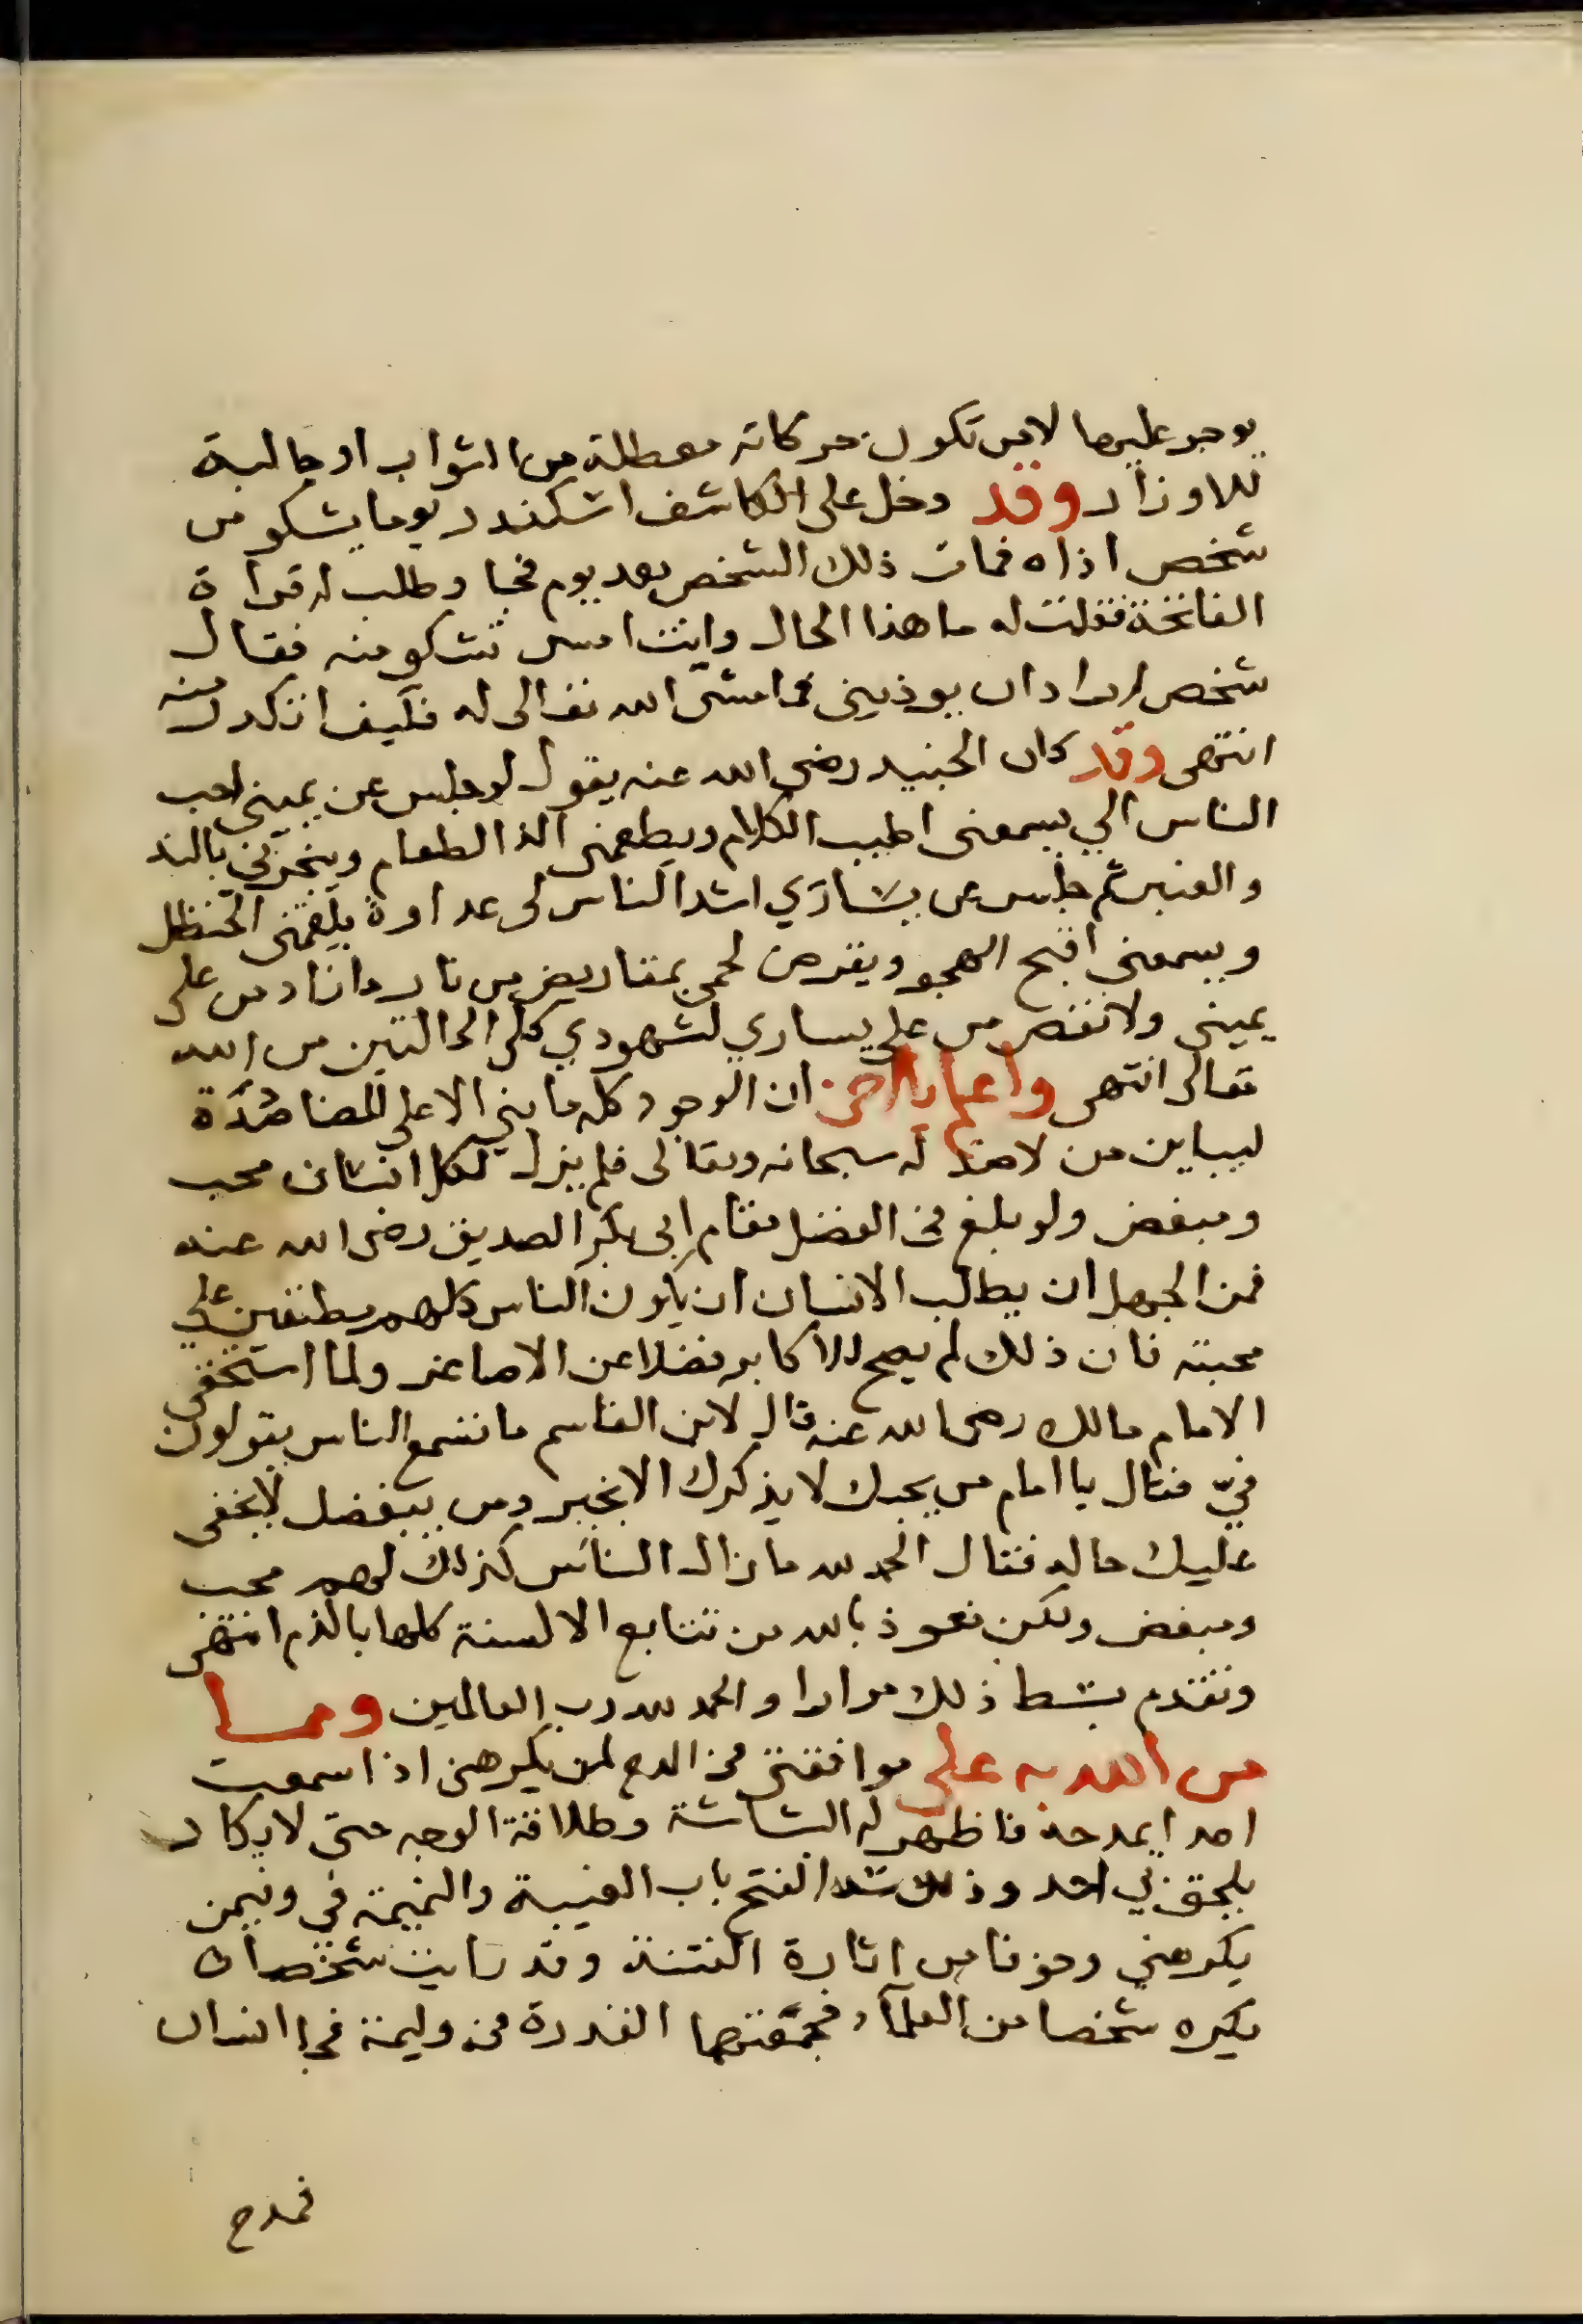 يوجر عليها لامن تكون حركاته معطلة من الثواب او جالبة
للاوزار وقد دخل على الكاشف اسكندر يوما يشكو من
شخص اذاه فمات ذلك الشخص بعد يوم فجا وطلب له قراة
الفاتحة فقلت له ما هذا الحال وانت امس تشكو منه فقال
شخص اراد ان يوذيني فما مشى الله تعالى له فكيف اتكدر منه
انتهى وقد كان الجنيد رضى الله عنه يقول لو جلس عن يميني احب
الناس الي يسمعنى اطيب الكلام ويطعمنى الذ الطعام ويبخرني بالند
والعنبر ثم جلس عن يساري اشد الناس لى عداوة يلقمنى الحنظل
ويسمعنى اقبح الهجو ويقرض لحمى بمقاريض من نار ما زاد من على
يمينى ولا نقص من على يساري لشهودي كلى الحالتين من الله
تعالى انتهى واعلم يا اخى ان الوجود كله ما بني الا على المضاددة
ليباين من لا ضد له سبحانه وتعالى فلم يزل لكل انسان محب
ومبغض ولو بلغ فى الفضل مقام ابى بكر الصديق رضى الله عنه
فمن الجهل ان يطلب الانسان ان يكون الناس كلهم مطبقين على
محبته فان ذلك لم يصح للاكابر فضلا عن الاصاغر ولما استخفى
الامام مالك رضى الله عنه قال لابن القاسم ما تسمع الناس يقولون
فيّ فقال يا امام من يحبك لا يذكرك الا بخير ومن يبغضك لا يخفى
عليك حاله فقال الحمد لله ما زال الناس كذلك لهم محب
ومبغض ولكن نعوذ بالله من تتابع الالسنة كلها بالذم انتهى
وتقدم بسط ذلك مرارا والحمد لله رب العالمين ومما
من الله به على موافقتى فى المدح لمن يكرهنى اذا سمعت
احدا يمدحه فاظهر له البشاشة وطلاقة الوجه حتى لا يكاد
يلحق بي احد وذلك سدا لفتح باب الغيبة والنميمة في وفيمن
يكرهني وخوفا من اثارة الفتنة وقد رايت شخصا
يكره شخصا من العلمآء فجمعتهما القدرة فى وليمة فجا انسان
فمدح